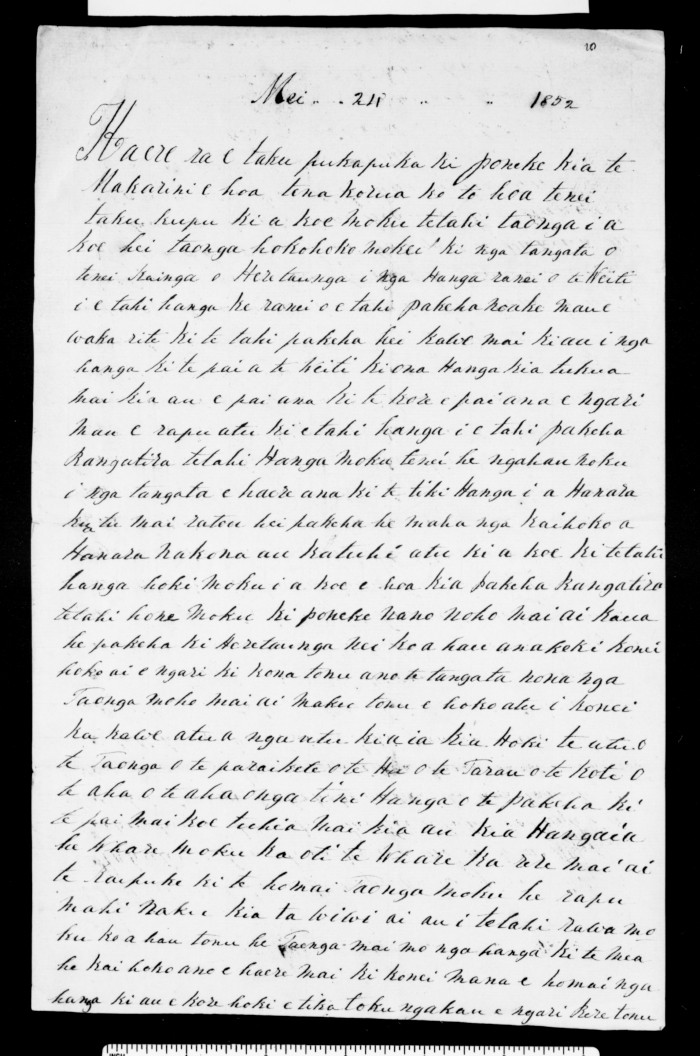 10
Mei .. .. 24 .. .. 1852
Haere ra e taku pukapuka ki poneke kia te
Makarini e hoa tena korua ko to hoa tenei
taku kupu ki a koe moku tetahi taonga i a
koe hei taonga hokohoko moku ki nga tangata o
tenei kainga o Heretaunga i nga Hanga ranei o te Weiti
i e tahi hanga ke ranei o e tahi pakeha noake mau e
waka rite ki te tahi pakeha hei kawe mai ki au i nga
hanga ki te pai a te Weiti ki ona Hanga kia tukua
mai kia au e pai ana ki te kore e pai ana e ngari
mau e rapu atu ki e tahi hanga i e tahi pakeha
Rangatira tetahi Hanga moku tenei he ngahau noku
i nga tangata e haere ana ki te tiki Hanga i a Hanara
tu mai ratou hei pakeha he maha nga kaihoko a
Hanara nakona au ka tuhi atu ki a koe ki tetahi
hanga hoki moku i a koe e hoa kia pakeha Rangatira
tetahi hone moku ki poneke nano noho mai ai kaua
he pakeha ki Heretaunga nei ko a hau anake ki konei
hoko ai e ngari ki kona tonu ano te tangata nona nga
Taonga noho mai ai maku tonu e hoko atu i konei
ka kawe atu a nga utu kia ia kia Hoki te utu o
te Taonga o te paraikete o te Ha o te Tarau o te koti o
te aha o te aha o nga tini Hanga o te pakeha ki
te pai mai koe tuhia mai kia au kia Hangaia
he whare moku ka oti te whare ka rere mai ai
te kaipuke ki te homai Taonga moku he rapu
mahi naku kia ta wiwi ai au i tetahi rawa mo
ku ko a hau tonu he Taonga mai mo nga hanga ki te mea
he kai hoko ano e haere mai ki konei mana e homai nga
hanga ki au e kore hoki e tika toku ngakau e ngari kere tonu